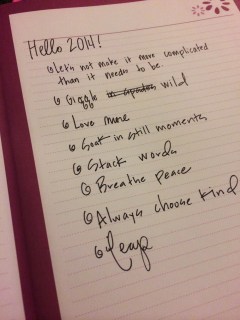 Hello 2014!
Let's not make it more complicated
than it needs to be.
Giggle wild
Love more
Soak in still moments
Stack words
Breathe peace
Always choose kind
Leap